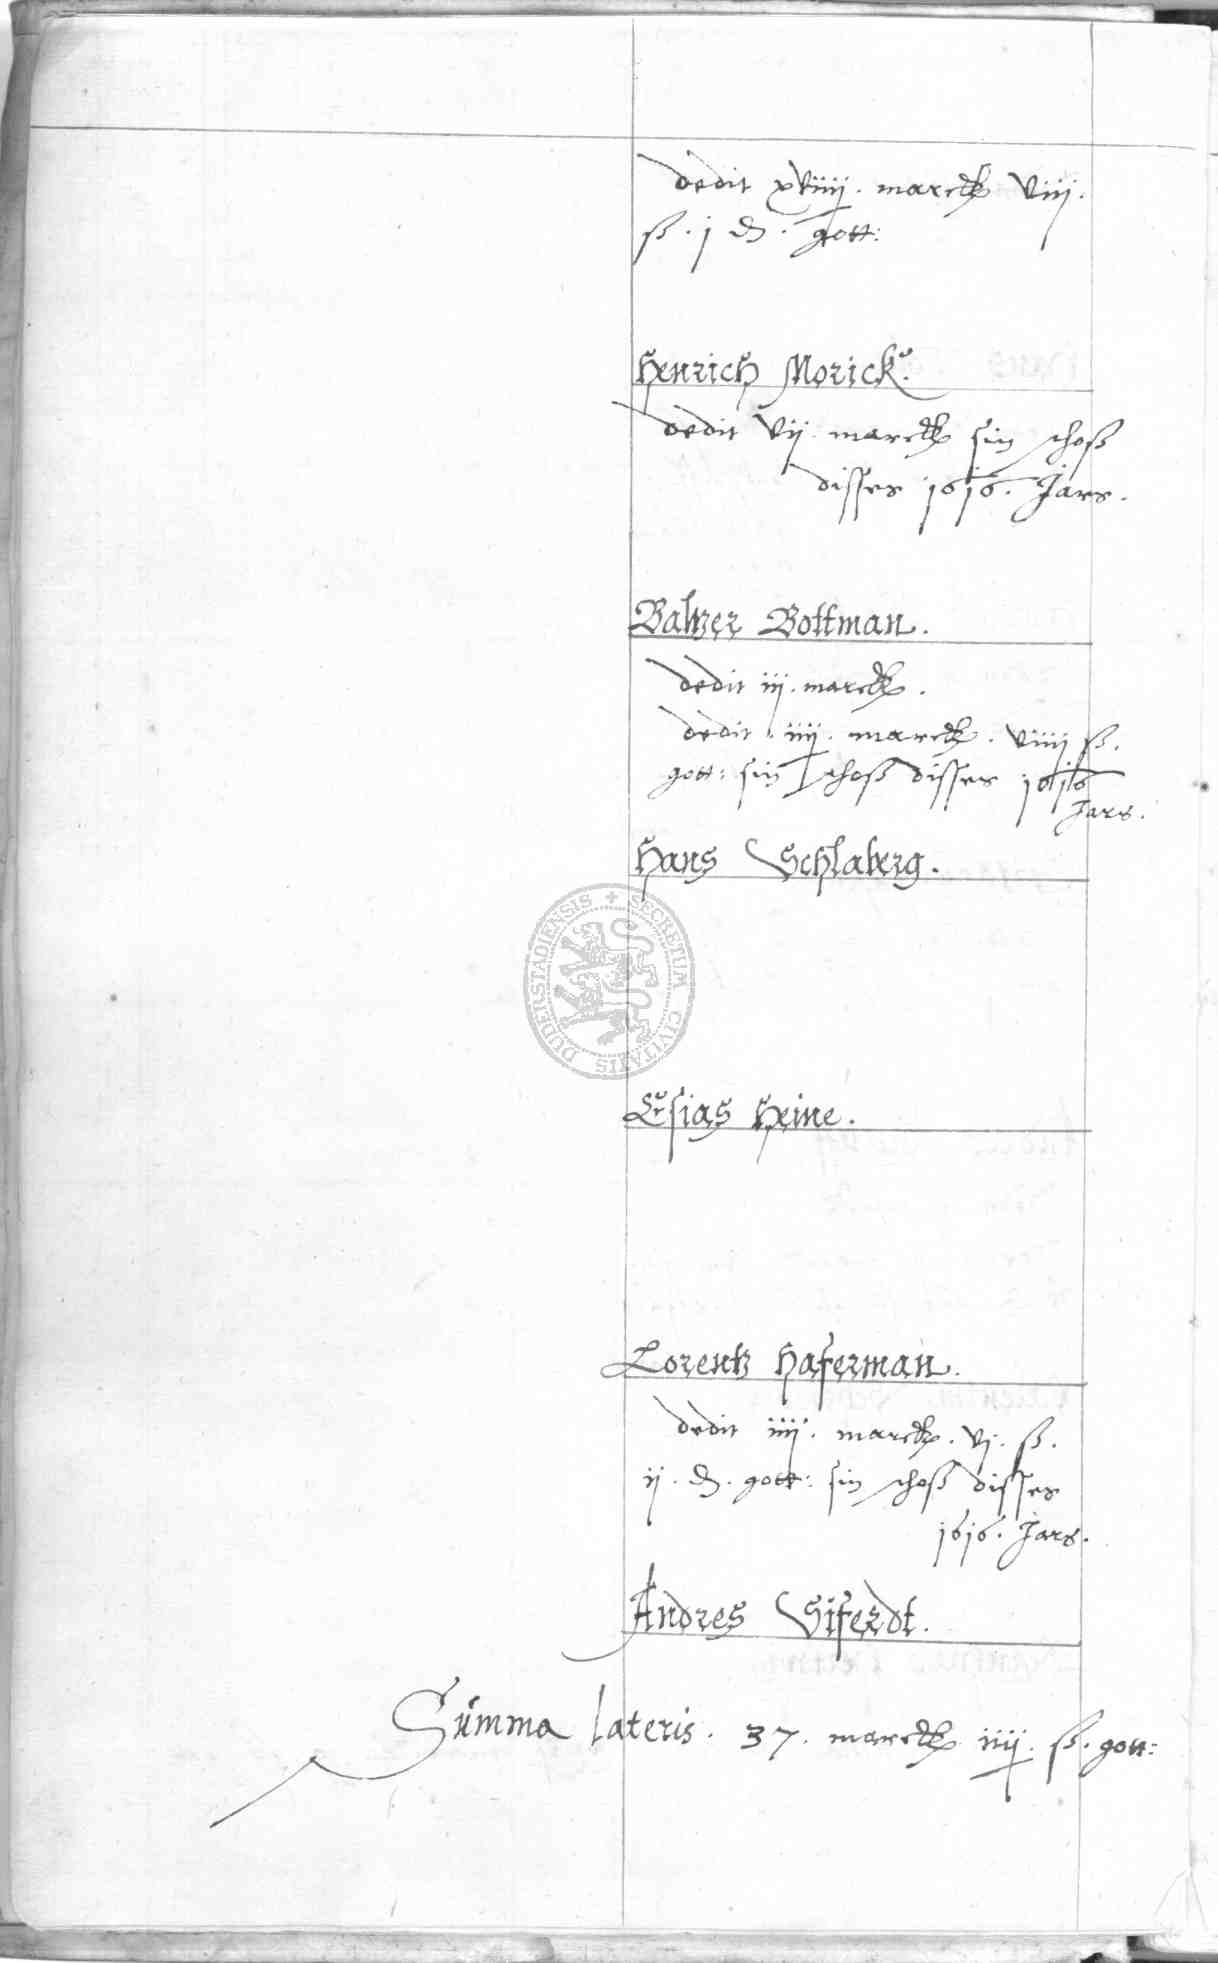 dedit xviiij. marck viij.
ß. j ₰. gott:
Henrich Morick.
dedit vij marck sin schoß
disses 1616. Jars.
Baltzer Bottman.
dedit iij. marck.
dedit iiij. marck. viiij ß.
gott: sin schoß disses 1616
Jars.
Hans Schlaberg.
SECRETUM CIVITATIS DUDERSTADIENSIS
Esias Heine.
Lorentz Haferman.
dedit iiij. marck. vj. ß.
ij. ₰. gott: sin schoß disses
1616. Jars.
Andres Siferdt.
Summa lateris. 37. marck iiij. ß. gott: